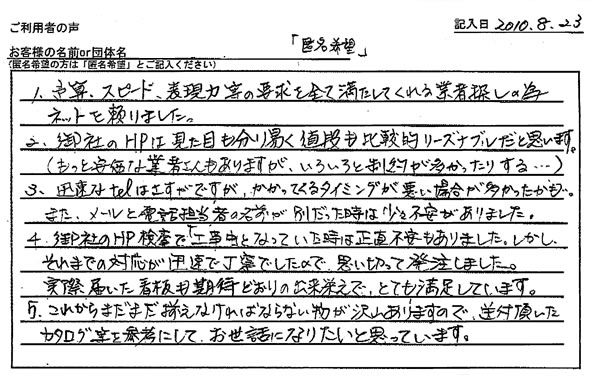 ご利用者の声
記入日 2010.8.23
お客様の名前or団体名 「匿名希望」
(匿名希望の方は「匿名希望」とご記入ください)
1. 予算、スピード、表現力等の要求を全て満たしてくれる業者探しの為
ネットを頼りました。
2. 御社のHPは見た目も分り易く値段も比較的リーズナブルだと思います。
(もっと安価な業者さんもありますが、いろいろと制約が多かったりする…)
3. 迅速なtelはさすがですが、かかってくるタイミングが悪い場合が多かったかも…
また、メールと電話担当者の名前が別だった時は少々不安がありました。
4. 御社のHP検査で「工事中」となっていた時は正直不安もありました。しかし、
それまでの対応が迅速で丁寧でしたので、思い切って発注しました。
実際届いた看板も期待どおりの出来栄えで、とても満足しています。
5. これからまだまだ揃えなければならない物が沢山ありますので、送付頂いた
カタログ等を参考にして、お世話になりたいと思っています。